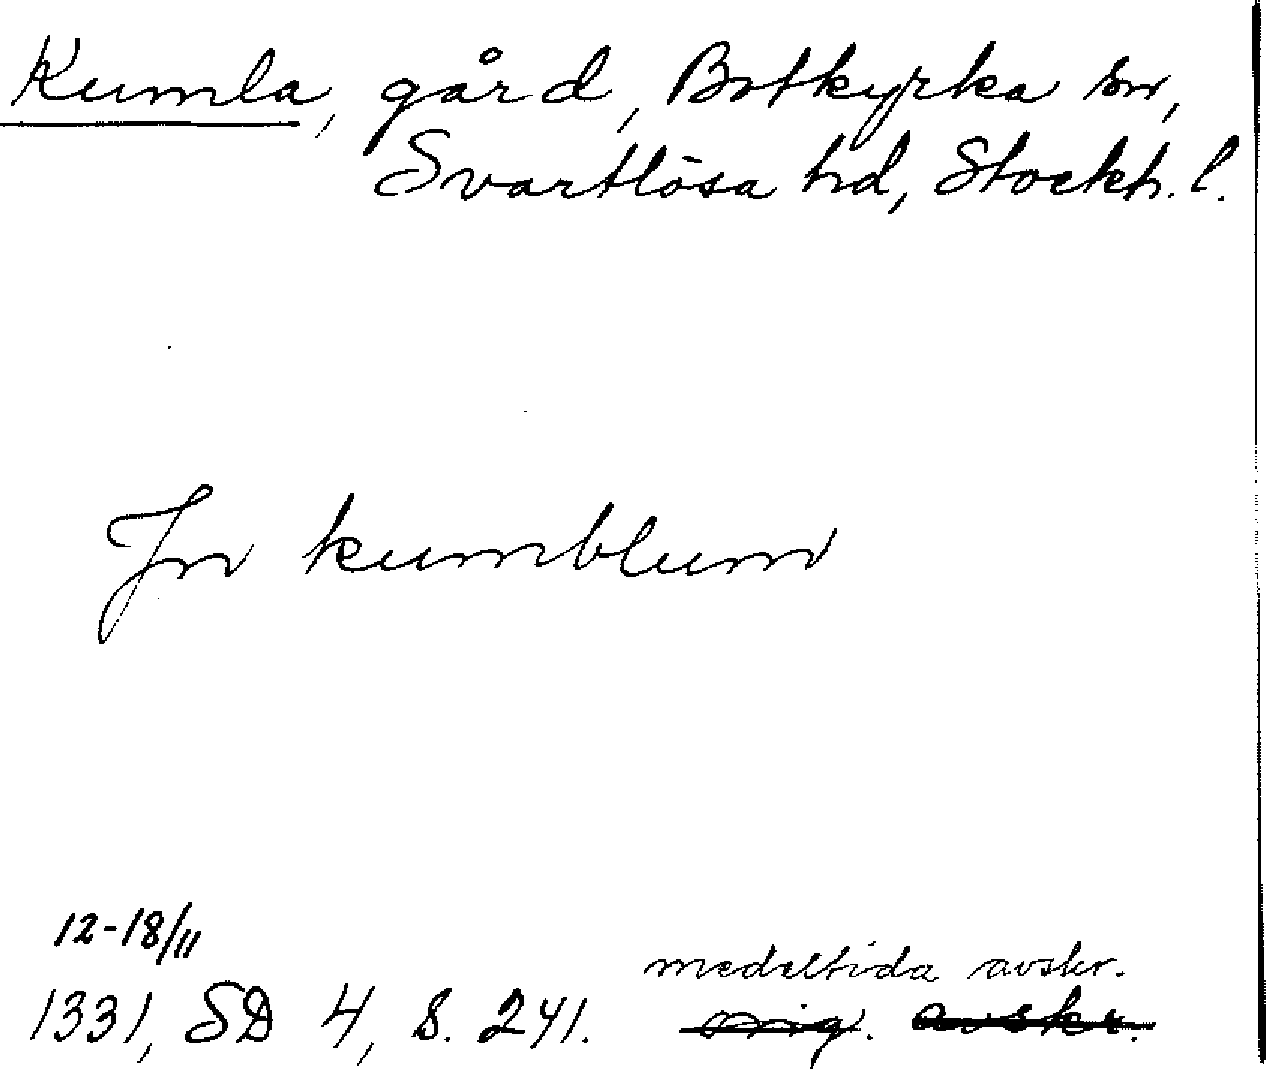 Kumla, gård, Botkyrka sn,
Svartlösa hd, Stockh. l.
Jn kumblum
12-18/11
medeltida avskr.
1331, SD 4, s. 241. orig. avskr.